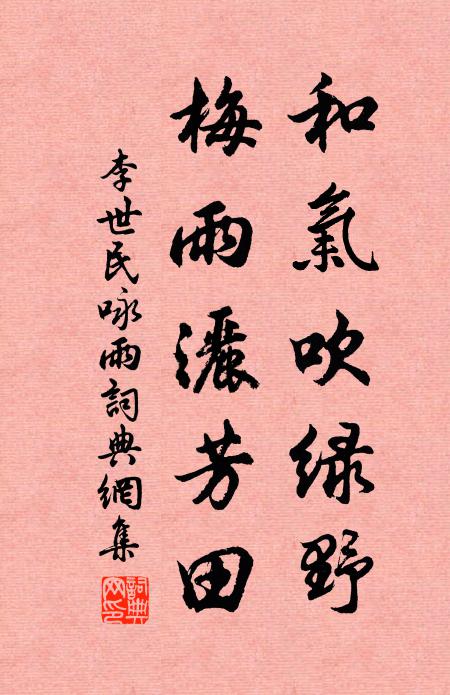 和氣吹绿野
梅雨灑芳田
李世民咏雨詞典網集
詞典網印